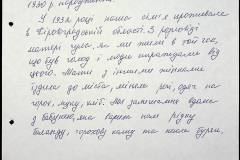 1930 р. народження.
У 1932 році наша сім'я проживала
в Кіровоградській області. З розповіді
матері чула, що ми жили в той час,
що був голод і люди страждали від
цього. Мати з іншими жінками
їздила до міста міняла речі, одяг на
горох, муку, хліб. Ми залишались вдома
з бабусею, яка варила нам рідку
баланду, горохову кашу та квасо буряк.